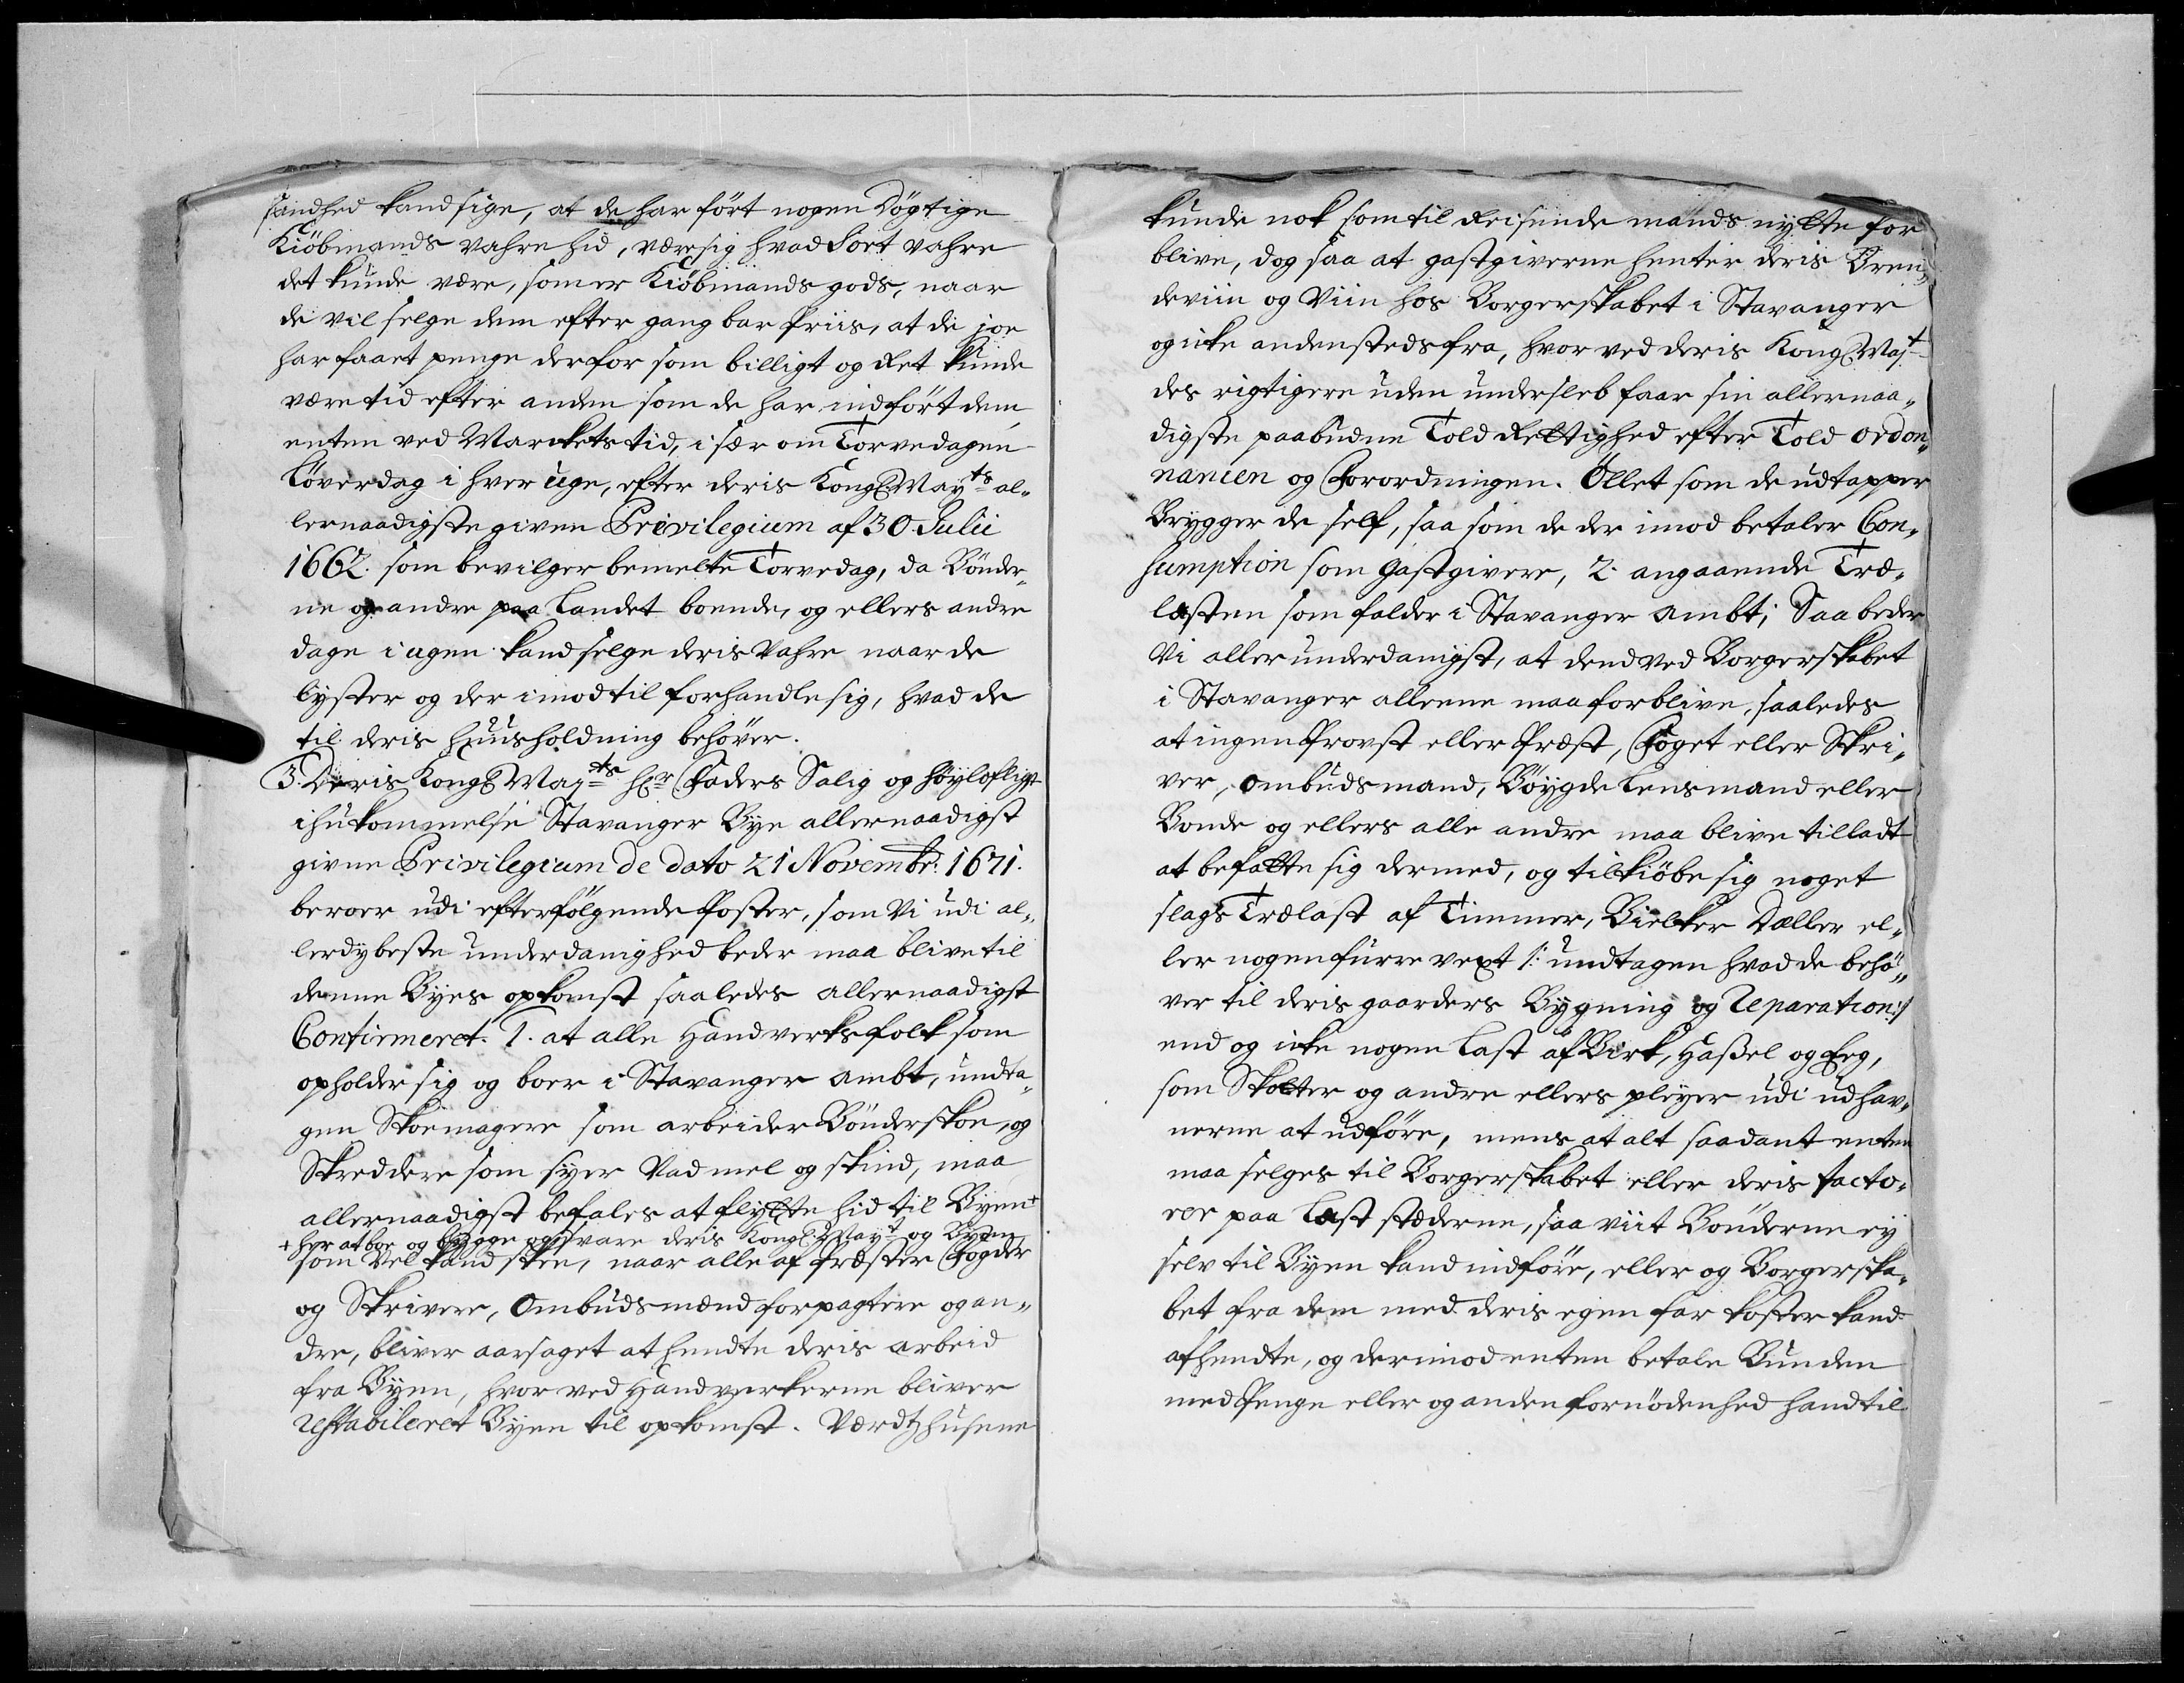 sandhed kand sige, at de har fört nogen Dögtige
Kiöbmands vahre hid, være sig hvad Sort vahre
det kunde være, som er Kiöbmands gods, naar
de vil selge dem efter gang bar Priis, at de joe
har faaet penge derfor som billigt og Ret kunde
være tid efter anden som de har indfört dem
enten ved Marckets tid, i sær om Torvedagen
Löverdag i hver uge, efter deris Kongl May.ts al„
lernaadigste given Privilegium af 30 Julii
1662. som bevilger bemelte Torvedag, da Bönder„
ne og andre paa Landet boende, og ellers andre
dage i ugen kand selge deris vahre naar de
lyster og der imod til forhandle sig, hvad de
til deris huusholdning behöver.
3. Deris Kongl May.ts Hr Faders Salig og höyloflige
ihukommelse Stavanger Bye allernaadigst
givne Privilegium de dato 21 Novembr: 1671.
beroer udi efterfölgende Poster, som Vi udi al„
lerdybeste underdanighed beder maa blive til
denne Byes opkomst saaledes allernaadigst
Confirmeret. 1. at alle Handverksfolk som
opholder sig og boer i Stavanger Ambt, undta„
gen Skoemagere som arbeider Bönderskoe, og
Skreddere som syer Vadmel og skind, maa
allernaadigst befales at flÿtte hid til Byen +
+ her at boe og bygge og svare deris Kongl May.t og Byen
som vel kand skee, naar alle af Præster Fogder
og Skrivere, Ombudsmænd forpagtere og an„
dre, bliver aarsaget at hendte deris arbeid
fra Byen, hvor ved Handverkerne bliver
restabileret Byen til opkomst. Værdtzhusene
kunde nok som til Reisende mands nytte for
blive, dog saa at gastgiverne henter deris Bren„
deviin og Viin hos Borgerskabet i Stavanger
og icke andensteds fra, hvor ved deris Kongl May.t
des rigtigere uden undersleb faar sin allernaa„
digste paabudne Told Rettighed efter Told ordon„
nancen og Forordningen. Öllet som de udtapper
Brygger de self, saa som de der imod betaler Con„
sumption som Gastgivere, 2. angaaende Træ„
lasten som falder i Stavanger Ambt; Saa beder
Vi allerunderdanigst, at dend ved Borgerskabet
i Stavanger alleene maa forblive, saaledes
at ingen Provst eller Præst, Foget eller Skri„
ver, Ombudsmand, Böygde Lensmand eller
Bonde og ellers alle andre maa blive tilladt
at befatte sig dermed, og tilkiöbe sig noget
slags Trælast af Timmer, Bielker Dæller el„
ler nogen furre vext /: undtagen hvad de behö„
ver til deris gaarders Bygning og Reparation :/
end og icke nogen Last af Birk, Hassel og Eeg,
som Skotter og andre ellers pleyer udi udhav„
nerne at udföre, mens at alt saadant enten
maa selges til Borgerskabet eller deris facto„
rer paa Last stæderne, saa viit Bönderne ey
selv til Byen kand indföre, eller og Borgerska„
bet fra dem med deris egen far koster kand
afhendte, og derimod enten betale Bunden
med Penge eller og anden fornödenhed hand til